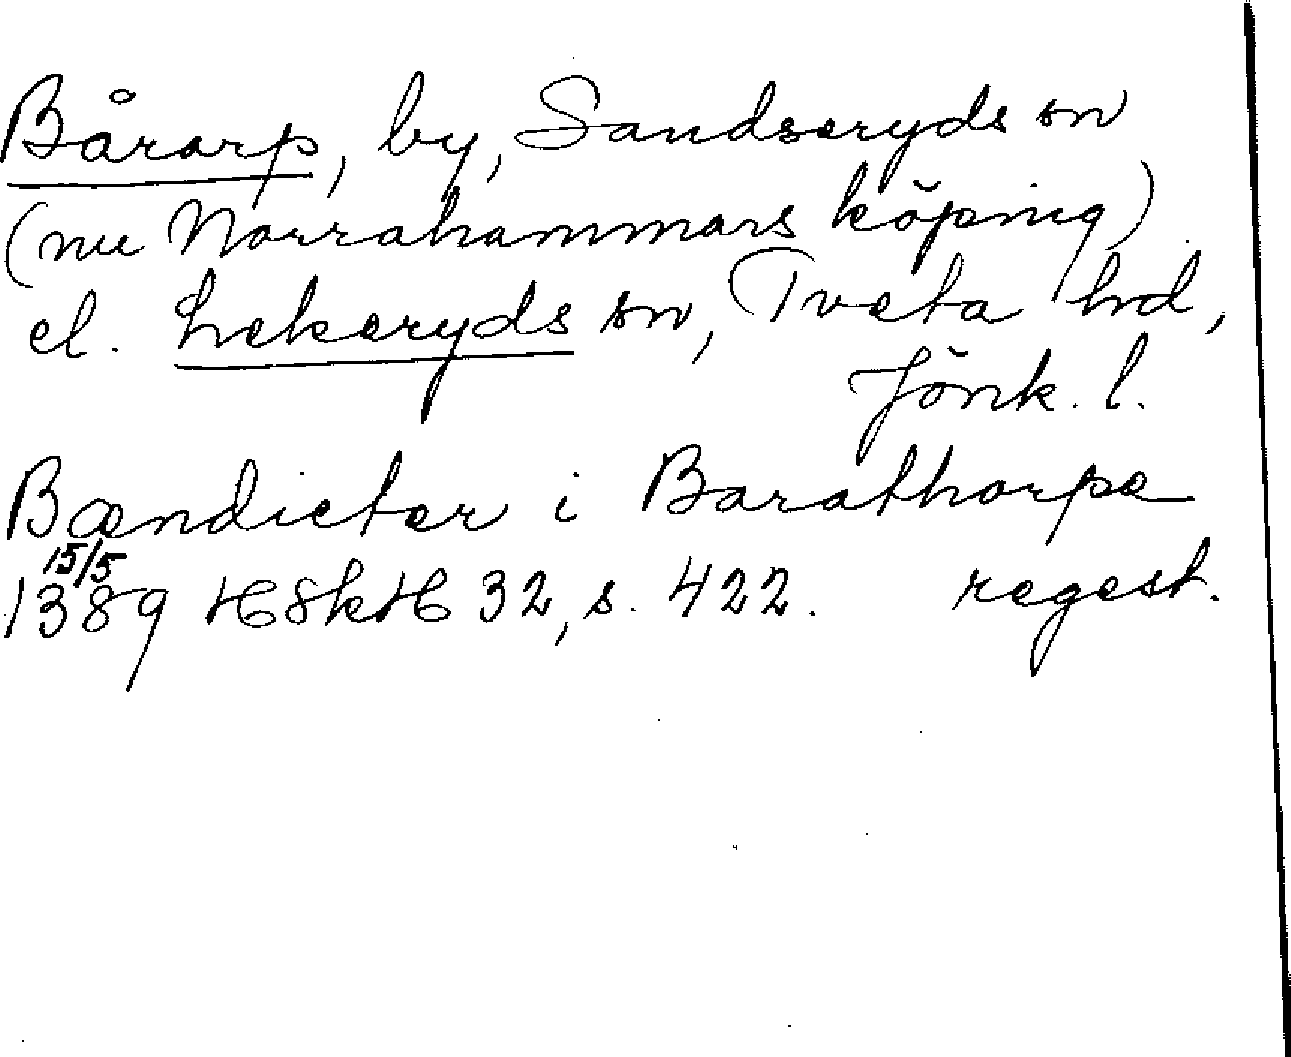 Bårarp, by, Sandseryds sn
(nu Norrahammars köping)
el. Lekeryds sn, Tveta hd,
Jönk. l.
Bændicter i Barathorpe
15/5
1389 HSkH 32, s. 422. regest.